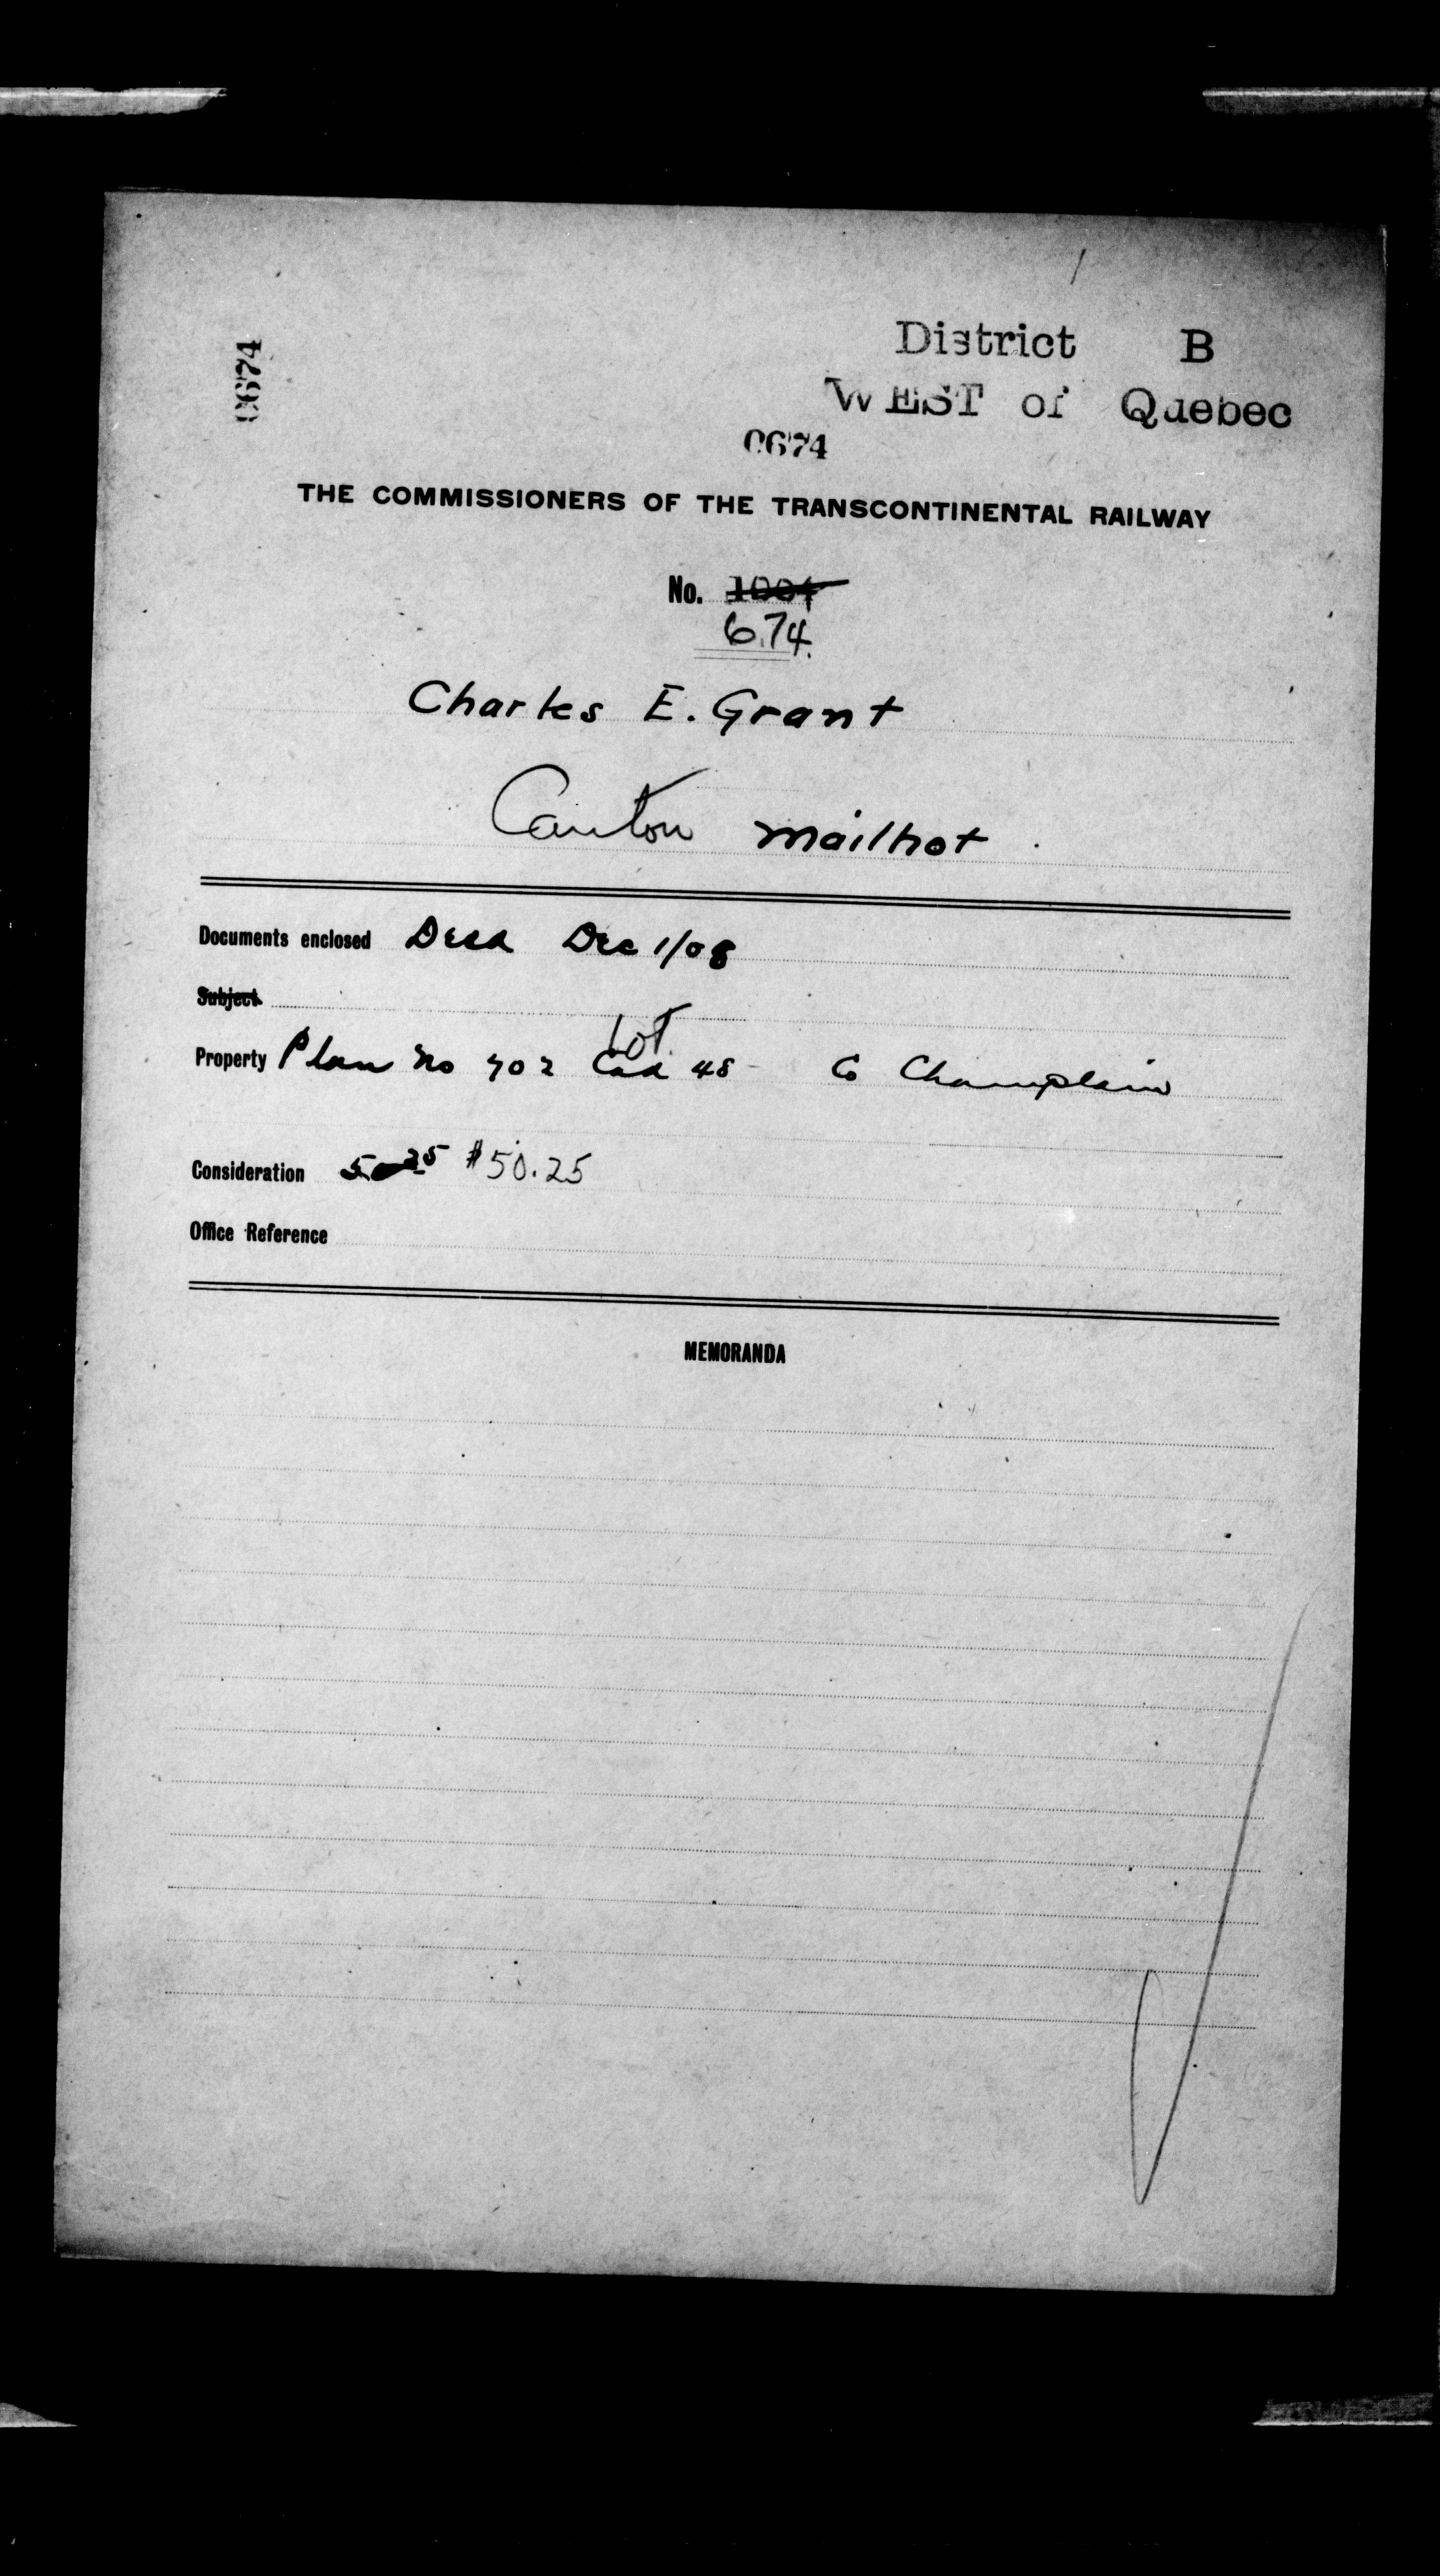 0674
District B
WEST of Quebec
0674
THE COMMISSIONERS OF THE TRANSCONTINENTAL RAILWAY
No. 1004
674.
Charles E. Grant
Canton Mailhot
Documents enclosed Deed Dec 1/08
Subject
Lot
Property Plan No 702 Cad 48 Co Champlain
Consideration 50.25 $50.25
Office Reference
MEMORANDA